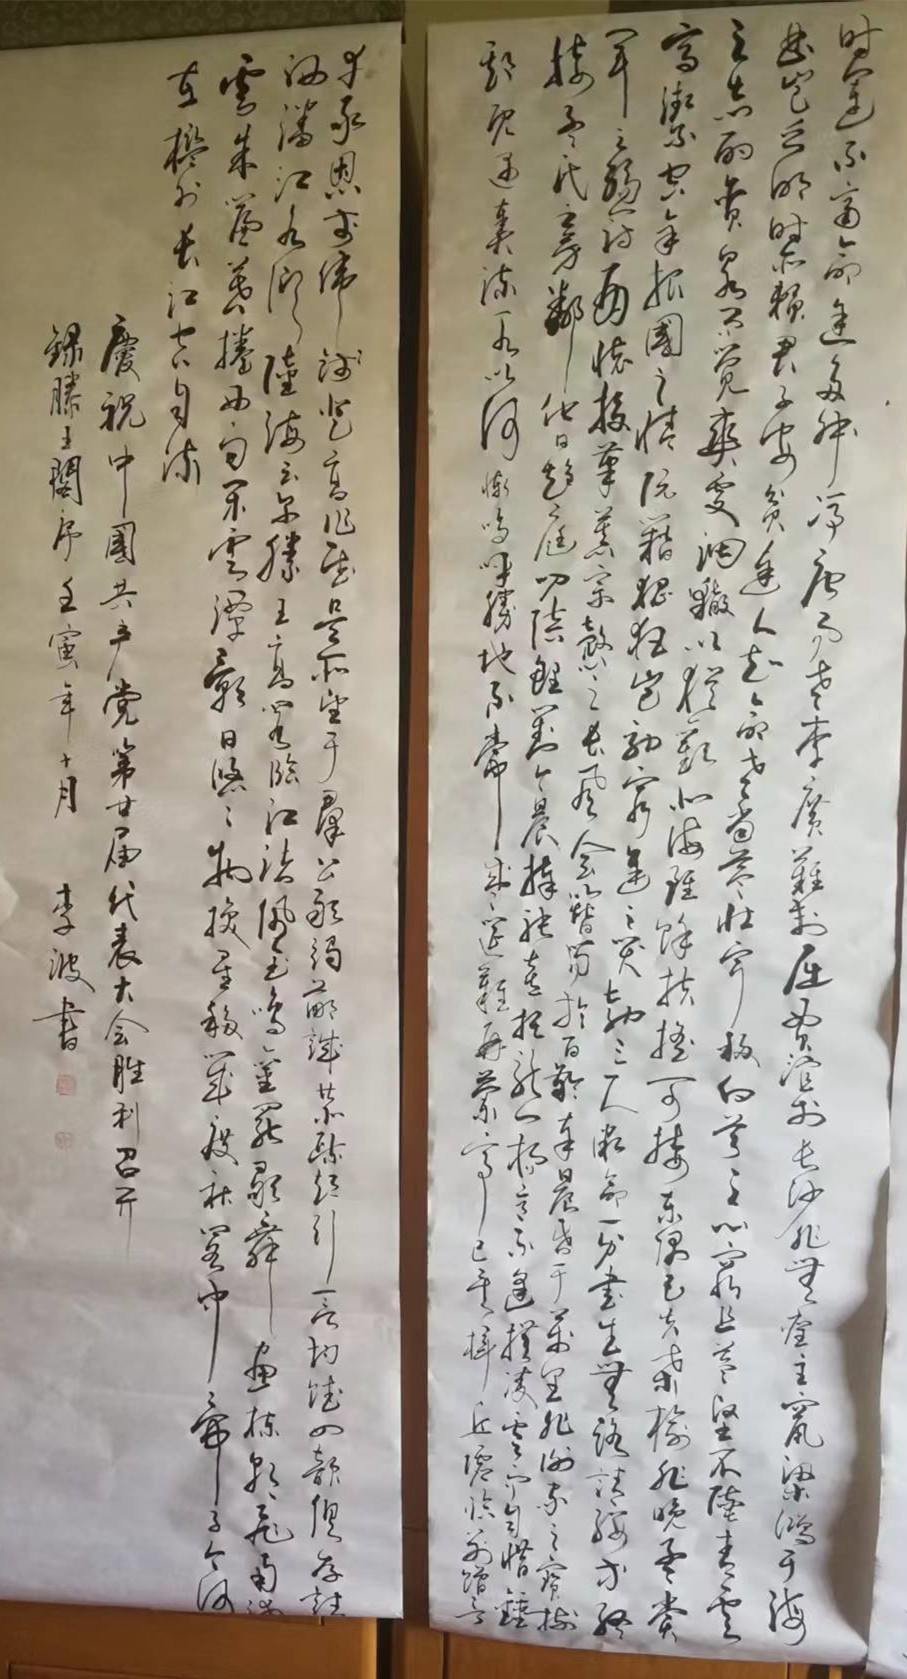 时运不齐命途多舛冯唐易老李广难封屈贾谊于长沙非无圣主窜梁鸿于海
曲岂乏明时所赖君子安贫达人知命老当益壮宁移白首之心穷且益坚不坠青云
之志酌贪泉而觉爽处涸辙以犹欢北海虽赊扶摇可接东隅已逝桑榆非晚孟尝
高洁空余报国之情阮籍猖狂岂效穷途之哭勃三尺微命一介书生无路请缨等终
军之弱冠有怀投笔慕宗悫之长风舍簪笏于百龄奉晨昏于万里非谢家之宝树
接孟氏之芳邻他日趋庭叨陪鲤对今晨捧袂喜托龙门杨意不逢抚凌云而自惜钟
期既遇奏流水以何惭呜呼胜地不常盛筵难再兰亭已矣梓泽丘墟临别赠言
幸承恩于伟饯登高作赋是所望于群公敢竭鄙诚恭疏短引一言均赋四韵俱成请
洒潘江各倾陆海云尔滕王高阁临江渚佩玉鸣鸾罢歌舞画栋朝飞南浦
云朱帘暮卷西山雨闲云潭影日悠悠物换星移几度秋阁中帝子今何
在槛外长江空自流
慶祝中國共产党第廿届代表大会胜利召开
録滕王閣序壬寅年十月 李波書